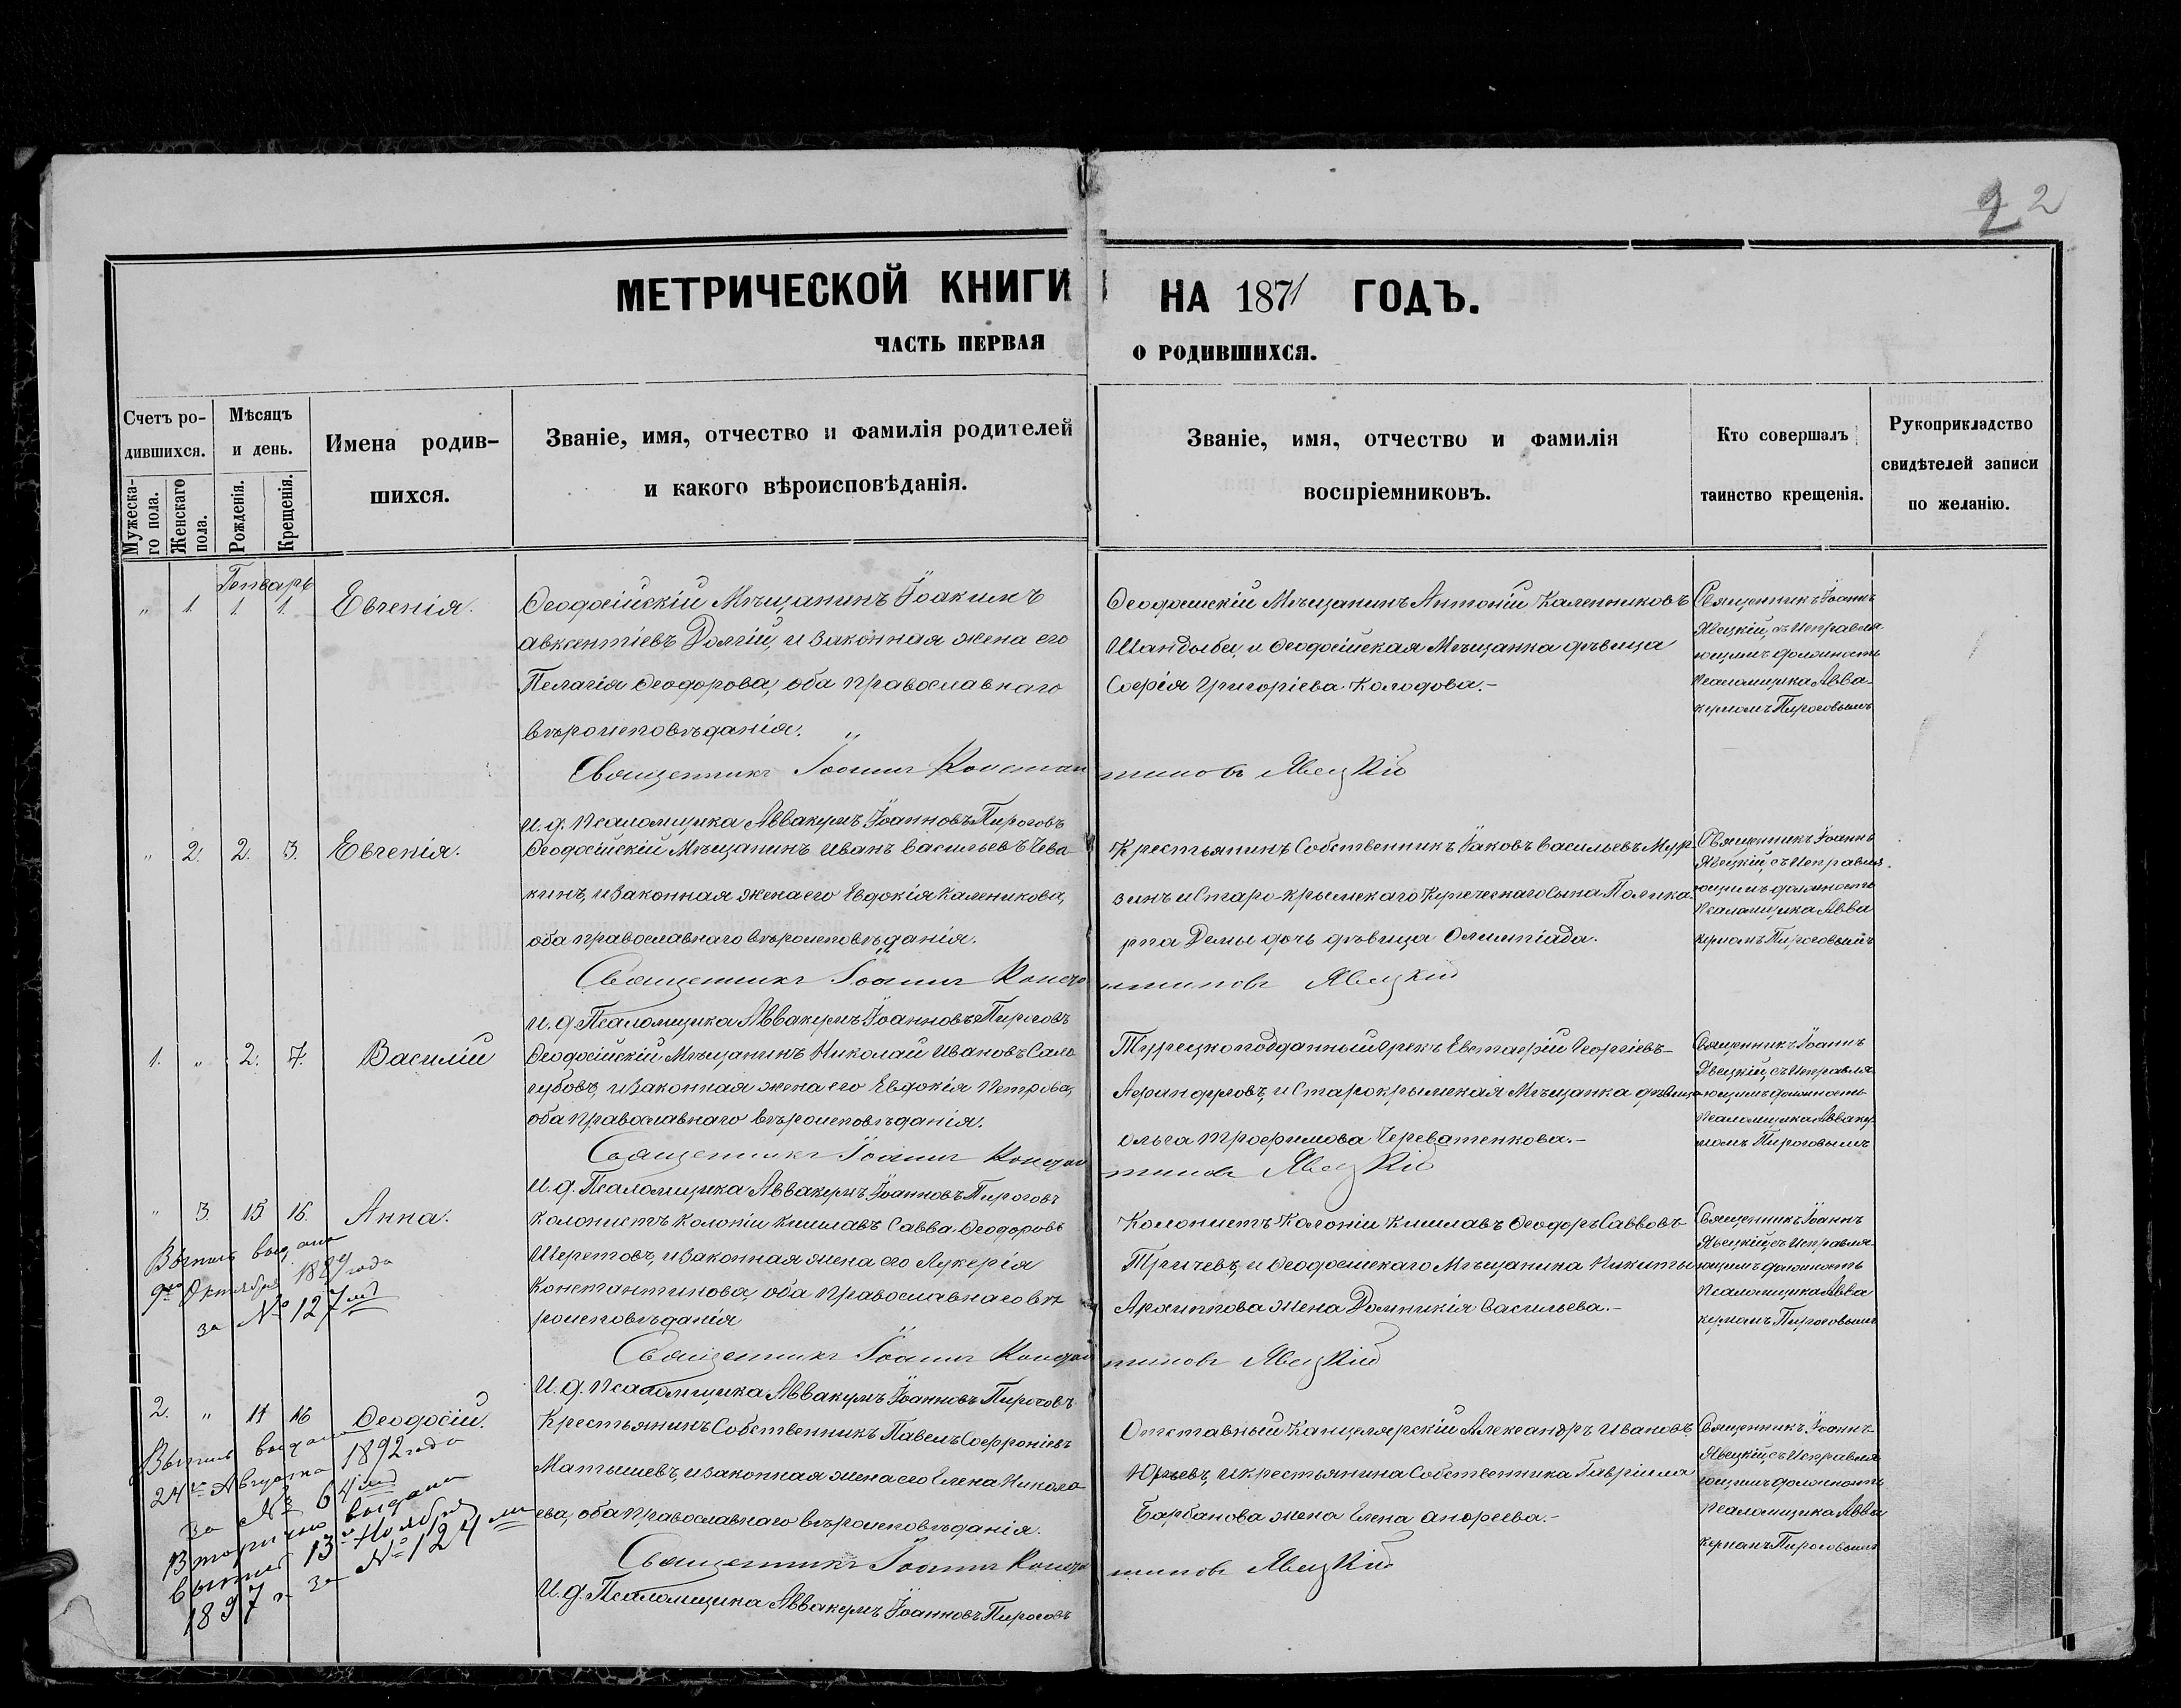 2 2
МЕТРИЧЕСКОЙ КНИГИ НА 1871 ГОДЪ.
ЧАСТЬ ПЕРВАЯ О РОДИВШИХСЯ.
Счетъ ро-
дившихся.
Мужеска-
го пола.
Женскаго
пола.
Мѣсяцъ
и день.
Рожденія.
Крещенія.
Имена родив-
шихся.
Званіе, имя, отчество и фамилія родителей
и какого вѣроисповѣданія.
Званіе, имя, отчество и фамилія
воспріемниковъ.
Кто совершалъ
таинство крещенія.
Рукоприкладство
свидѣтелей записи
по желанію.
Генварь
" 1. 1 1. Евгенія.
Ѳеодосійскій Мѣщанинъ Іоакимъ
Авксентіевъ Долгій, и законная жена его
Пелагія Ѳеодорова, оба православнаго
вѣроисповѣданія. "
Ѳеодосійскій Мѣщанинъ Антоній Каленниковъ
Шандыба, и Ѳеодосійская Мѣщанка дѣвица
Софія Григоріева Колодова.-
Священникъ Іоаннъ
Явецкій, съ Исправля-
ющимъ должность
Псаломщика Авва-
кумомъ Пироговымъ
Священникъ Іоаннъ Константиновъ Явецкій
И. д. Псаломщика Аввакумъ Іоанновъ Пироговъ
" 2. 2. 3. Евгенія.
Ѳеодосійскій Мѣщанинъ Иванъ Васильевъ Чева-
кинъ, и законная жена его Евдокія Каленикова,
оба православнаго вѣроисповѣданія.
Крестьянинъ Собственникъ Іаковъ Васильевъ Мур-
зинъ и Старо-Крымскаго Купеческаго Сына Полика-
рпа Демы дочь дѣвица Олимпіада.
Священникъ Іоаннъ
Явецкій, съ Исправля-
ющимъ должность
Псаломщика Авва
кумомъ Пироговымъ
Священникъ Іоаннъ Константиновъ Явецкій
И. д. Псаломщика Аввакумъ Іоанновъ Пироговъ
1. " 2. 7. Василій
Ѳеодосійскій Мѣщанинъ Николай Ивановъ Сало-
губовъ, и законная жена его Евдокія Петрова,
оба православнаго вѣроисповѣданія.
Турецкоподданный Грекъ Евстафій Георгіевъ-
и Старокрымская Мѣщанка дѣвица
Ольга Трофимова Череватенкова.-
Священникъ Іоаннъ
Явецкій, съ Исправля-
ющимъ должность
Псаломщика Авваку-
момъ Пироговымъ
Священникъ Іоаннъ Константиновъ Явецкій
И. д. Псаломщика Аввакумъ Іоанновъ Пироговъ
" 3. 15 16. Анна.
Выпись выдана
9го Октября 1889 года
за № 127мъ
Колонистъ Колоніи Кишлавъ Савва Ѳеодоровъ
Шеретовъ, и законная жена его Лукерія
Константинова, оба православнаго вѣ
роисповѣданія
Колонистъ Колоніи Кишлавъ Ѳеодоръ Савовъ
Тричевъ, и Ѳеодосійскаго Мѣщанина Никиты
Архиптова жена Домникія Васильева.-
Священникъ Іоаннъ
Явецкій съ Исправля-
ющимъ должность
Псаломщика Авва
кумомъ Пироговымъ
Священникъ Іоаннъ Константиновъ Явецкій
И. д. Псаломщика Аввакумъ Іоанновъ Пироговъ
2. " 11 16 Ѳеодосій.
Выпись выдана
24го Августа 1892 года
за № 64мъ
Вторично выдана
выпись 13го Ноября
1897 г. за № 124мъ
Крестьянинъ Собственникъ Павелъ Софроніевъ
Матышевъ, и законная жена его Елена Никола-
ева, оба Православнаго вѣроисповѣданія.
Отставный Канцелярскій Александръ Ивановъ
Юрьевъ, и крестьянина Собственника Гавріила
Барбанова жена Елена Андреева.-
Священникъ Іоаннъ
Явецкій съ Исправля
ющимъ должность
Псаломщика Авва
кумомъ Пироговымъ
Священникъ Іоаннъ Константиновъ Явецкій
И. д. Псаломщика Аввакумъ Іоанновъ Пироговъ